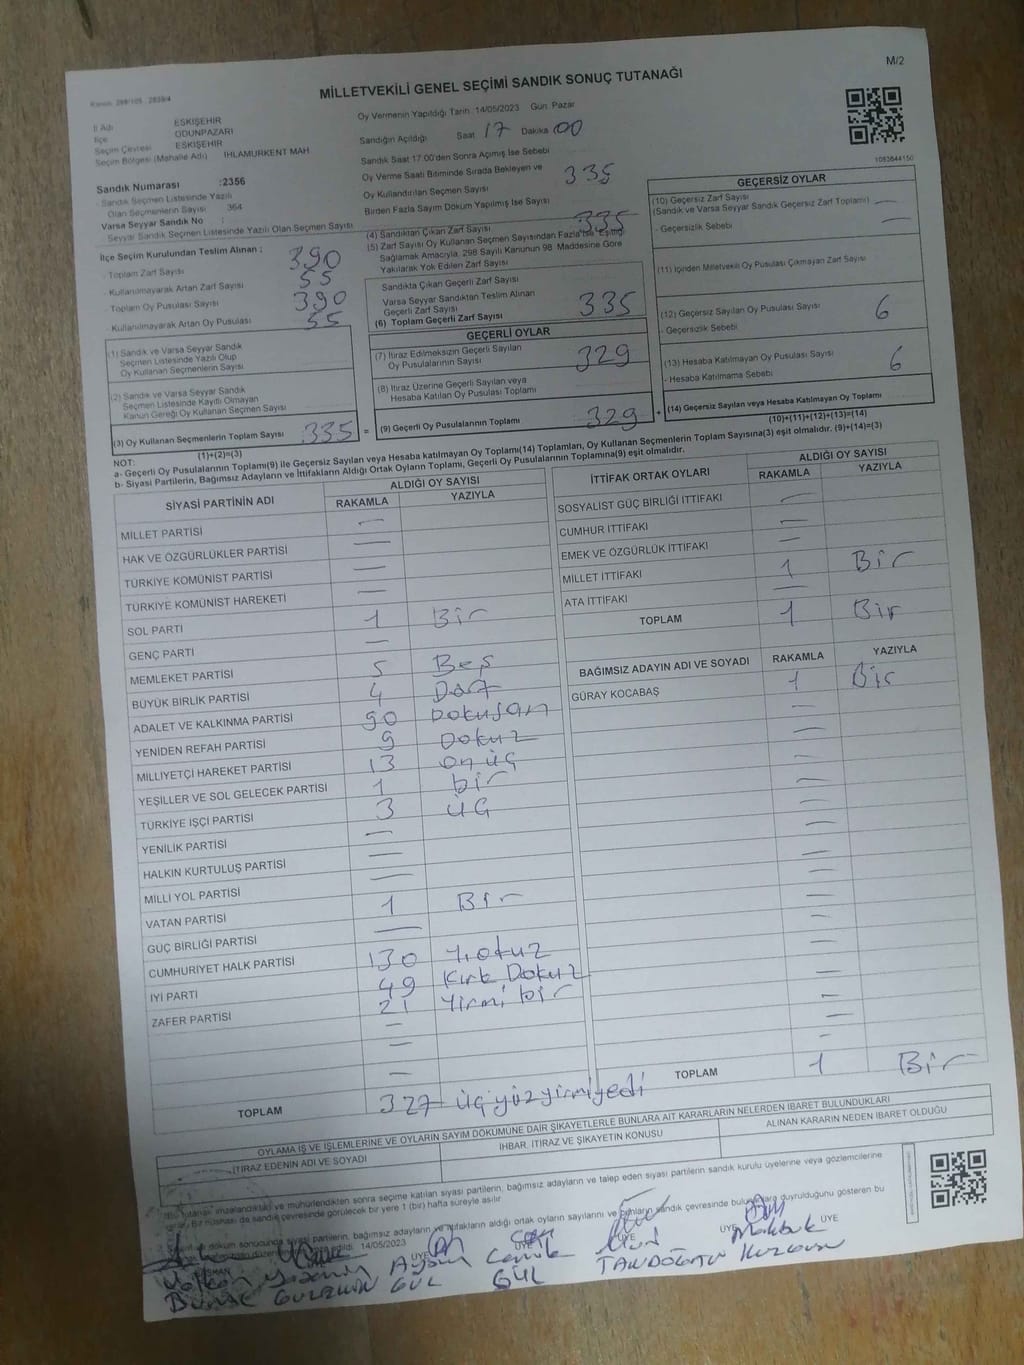 M/2
MİLLETVEKİLİ GENEL SEÇİMİ SANDIK SONUÇ TUTANAĞI
İl Adı ESKİŞEHİR
İlçe ODUNPAZARI
Seçim Çevresi ESKİŞEHİR
Seçim Bölgesi (Mahalle Adı) IHLAMURKENT MAH
Oy Vermenin Yapıldığı Tarih: 14/05/2023 Gün: Pazar
Sandığın Açıldığı Saat 17 Dakika 00
Sandık Saat 17:00'den Sonra Açımış İse Sebebi
Oy Verme Saati Bitiminde Sırada Bekleyen ve
Oy Kullandırılan Seçmen Sayısı 335
Birden Fazla Sayım Döküm Yapılmış İse Sayısı
1083644150
Sandık Numarası :2356
- Sandık Seçmen Listesinde Yazılı
Olan Seçmenlerin Sayısı 364
Varsa Seyyar Sandık No :
- Seyyar Sandık Seçmen Listesinde Yazılı Olan Seçmen Sayısı
İlçe Seçim Kurulundan Teslim Alınan :
- Toplam Zarf Sayısı 390
- Kullanılmayarak Artan Zarf Sayısı 55
- Toplam Oy Pusulası Sayısı 390
- Kullanılmayarak Artan Oy Pusulası 55
(1) Sandık ve Varsa Seyyar Sandık
Seçmen Listesinde Yazılı Olup
Oy Kullanan Seçmenlerin Sayısı
(2) Sandık ve Varsa Seyyar Sandık
Seçmen Listesinde Kayıtlı Olmayan
Kanun Gereği Oy Kullanan Seçmen Sayısı
(3) Oy Kullanan Seçmenlerin Toplam Sayısı 335 =
(1)+(2)=(3)
(4) Sandıktan Çıkan Zarf Sayısı 335
(5) Zarf Sayısı Oy Kullanan Seçmen Sayısından Fazla İse, Eşitliği
Sağlamak Amacıyla, 298 Sayılı Kanunun 98. Maddesine Göre
Yakılarak Yok Edilen Zarf Sayısı
Sandıkta Çıkan Geçerli Zarf Sayısı
Varsa Seyyar Sandıktan Teslim Alınan
Geçerli Zarf Sayısı
(6) Toplam Geçerli Zarf Sayısı 335
GEÇERLİ OYLAR
(7) İtiraz Edilmeksizin Geçerli Sayılan
Oy Pusulalarının Sayısı 329
(8) İtiraz Üzerine Geçerli Sayılan veya
Hesaba Katılan Oy Pusulası Toplamı
(9) Geçerli Oy Pusulalarının Toplamı 329 +
GEÇERSİZ OYLAR
(10) Geçersiz Zarf Sayısı
(Sandık ve Varsa Seyyar Sandık Geçersiz Zarf Toplamı) —
- Geçersizlik Sebebi —
(11) İçinden Milletvekili Oy Pusulası Çıkmayan Zarf Sayısı
(12) Geçersiz Sayılan Oy Pusulası Sayısı 6
- Geçersizlik Sebebi
(13) Hesaba Katılmayan Oy Pusulası Sayısı 6
- Hesaba Katılmama Sebebi
(14) Geçersiz Sayılan veya Hesaba Katılmayan Oy Toplamı
(10)+(11)+(12)+(13)=(14)
NOT:
a- Geçerli Oy Pusulalarının Toplamı(9) ile Geçersiz Sayılan veya Hesaba katılmayan Oy Toplamı(14) Toplamları, Oy Kullanan Seçmenlerin Toplam Sayısına(3) eşit olmalıdır. (9)+(14)=(3)
b- Siyasi Partilerin, Bağımsız Adayların ve İttifakların Aldığı Ortak Oyların Toplamı, Geçerli Oy Pusulalarının Toplamına(9) eşit olmalıdır.
SİYASİ PARTİNİN ADI ALDIĞI OY SAYISI
RAKAMLA YAZIYLA
MİLLET PARTİSİ —
HAK VE ÖZGÜRLÜKLER PARTİSİ —
TÜRKİYE KOMÜNİST PARTİSİ —
TÜRKİYE KOMÜNİST HAREKETİ —
SOL PARTİ 1 Bir
GENÇ PARTİ —
MEMLEKET PARTİSİ 5 Beş
BÜYÜK BİRLİK PARTİSİ 4 Dört
ADALET VE KALKINMA PARTİSİ 90 Doksan
YENİDEN REFAH PARTİSİ 9 Dokuz
MİLLİYETÇİ HAREKET PARTİSİ 13 on üç
YEŞİLLER VE SOL GELECEK PARTİSİ 1 bir
TÜRKİYE İŞÇİ PARTİSİ 3 üç
YENİLİK PARTİSİ —
HALKIN KURTULUŞ PARTİSİ —
MİLLİ YOL PARTİSİ —
VATAN PARTİSİ 1 Bir
GÜÇ BİRLİĞİ PARTİSİ —
CUMHURİYET HALK PARTİSİ 130 Y.otuz
İYİ PARTİ 49 Kırk Dokuz
ZAFER PARTİSİ 21 Yirmi bir
—
—
—
TOPLAM 327 üç yüz yirmi yedi
İTTİFAK ORTAK OYLARI ALDIĞI OY SAYISI
RAKAMLA YAZIYLA
SOSYALİST GÜÇ BİRLİĞİ İTTİFAKI —
CUMHUR İTTİFAKI —
EMEK VE ÖZGÜRLÜK İTTİFAKI —
MİLLET İTTİFAKI 1 Bir
ATA İTTİFAKI —
TOPLAM 1 Bir
BAĞIMSIZ ADAYIN ADI VE SOYADI RAKAMLA YAZIYLA
GÜRAY KOCABAŞ 1 Bir
TOPLAM 1 Bir
OYLAMA İŞ VE İŞLEMLERİNE VE OYLARIN SAYIM DÖKÜMÜNE DAİR ŞİKAYETLERLE BUNLARA AİT KARARLARIN NELERDEN İBARET BULUNDUKLARI
İTİRAZ EDENİN ADI VE SOYADI İHBAR, İTİRAZ VE ŞİKAYETİN KONUSU ALINAN KARARIN NEDEN İBARET OLDUĞU
imzalandıktan ve mühürlendikten sonra seçime katılan siyasi partilerin, bağımsız adayların ve talep eden siyasi partilerin sandık kurulu üyelerine veya gözlemcilerine
Bir nüshası da sandık çevresinde görülecek bir yere 1 (bir) hafta süreyle asılır.
döküm sonucunda siyasi partilerin, bağımsız adayların ve ittifakların aldığı ortak oyların sayılarını ve bunların sandık çevresinde bulunanlara duyrulduğunu gösteren bu
14/05/2023
ÜYE ÜYE ÜYE ÜYE ÜYE
Aysun Cemile
GÜL GÜL TANDOĞAN